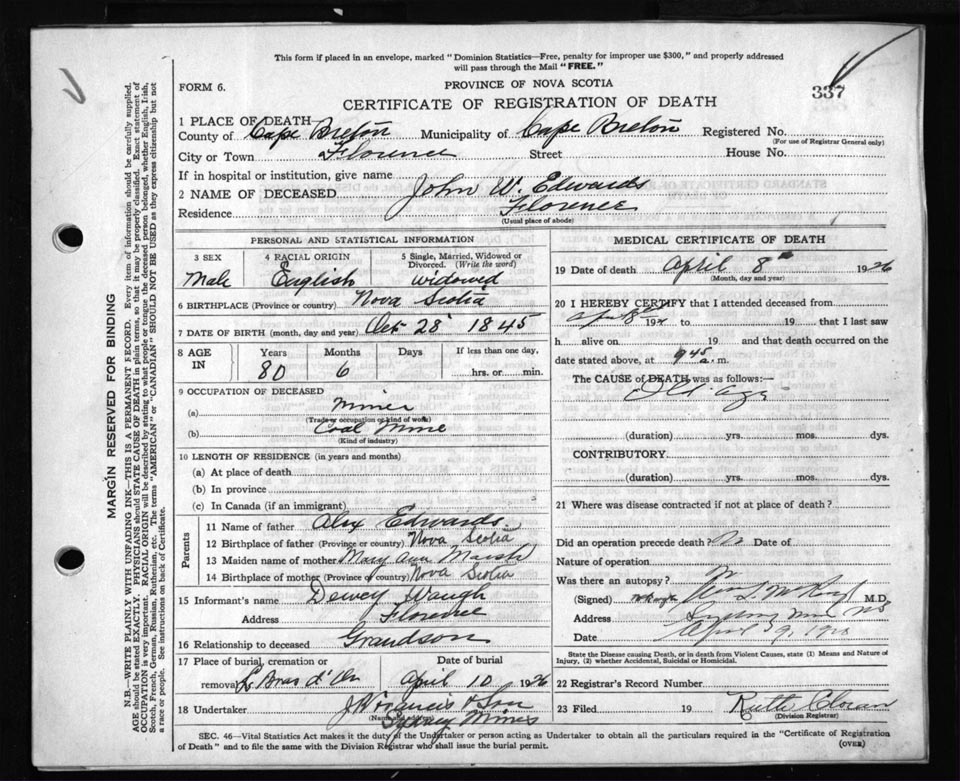 This form if placed in an envelope, marked "Dominion Statistics—Free, penalty for improper use $300," and properly addressed
will pass through the Mail "FREE."
FORM 6.
PROVINCE OF NOVA SCOTIA
337
CERTIFICATE OF REGISTRATION OF DEATH
1 PLACE OF DEATH
County of Cape Breton Municipality of Cape Breton Registered No.
(For use of Registrar General only)
City or Town Florence Street House No.
If in hospital or institution, give name
2 NAME OF DECEASED John W. Edwards
Residence Florence
(Usual place of abode)
PERSONAL AND STATISTICAL INFORMATION
3 SEX 4 RACIAL ORIGIN 5 Single, Married, Widowed or Divorced. (Write the word)
Male English widowed
6 BIRTHPLACE (Province or country) Nova Scotia
7 DATE OF BIRTH (month, day and year) Oct 28 1845
8 AGE IN Years Months Days If less than one day,
80 6 hrs. or min.
9 OCCUPATION OF DECEASED
(a) miner
(Trade or occupation or kind of work)
(b) Coal Mine
(Kind of industry)
10 LENGTH OF RESIDENCE (in years and months)
(a) At place of death
(b) In province
(c) In Canada (if an immigrant)
Parents
11 Name of father Alex Edwards
12 Birthplace of father (Province or country) Nova Scotia
13 Maiden name of mother Mary Ann Marsh
14 Birthplace of mother (Province or country) Nova Scotia
15 Informant's name Dewey Waugh
Address Florence
16 Relationship to deceased Grandson
17 Place of burial, cremation or removal Date of burial
L Bras d'Or April 10 1926
18 Undertaker & Son
(Name and address) Sydney Mines
MEDICAL CERTIFICATE OF DEATH
19 Date of death April 8th 1926
(Month, day and year)
20 I HEREBY CERTIFY that I attended deceased from
April 8th 192 to 19 that I last saw
h alive on 19 and that death occurred on the
date stated above, at 9 45 a.m.
The CAUSE of DEATH was as follows:—
Old age
(duration) yrs. mos. dys.
CONTRIBUTORY.
(duration) yrs. mos. dys.
21 Where was disease contracted if not at place of death?
Did an operation precede death? No Date of
Nature of operation
Was there an autopsy?
(Signed) M.D.
Address Sydney Mines NS
Date April 9, 1926
State the Disease causing Death, or in death from Violent Causes, state (1) Means and Nature of
Injury, (2) whether Accidental, Suicidal or Homicidal.
22 Registrar's Record Number
23 Filed 19 Ruth Cloran
(Division Registrar)
SEC. 46—Vital Statistics Act makes it the duty of the Undertaker or person acting as Undertaker to obtain all the particulars required in the "Certificate of Registration
of Death" and to file the same with the Division Registrar who shall issue the burial permit.
(OVER)
MARGIN RESERVED FOR BINDING
N.B.—WRITE PLAINLY WITH UNFADING INK—THIS IS A PERMANENT RECORD. Every item of information should be carefully supplied.
AGE should be stated EXACTLY. PHYSICIANS should STATE CAUSE OF DEATH in plain terms, so that it may be properly classified. Exact statement of
OCCUPATION is very important. RACIAL ORIGIN will be described by stating to what people or tongue the deceased person belonged, whether English, Irish,
Scotch, French, German, Russian, Ruthenian, etc. The terms "AMERICAN" or "CANADIAN" SHOULD NOT BE USED as they express citizenship but not
a race or people. See instructions on back of Certificate.